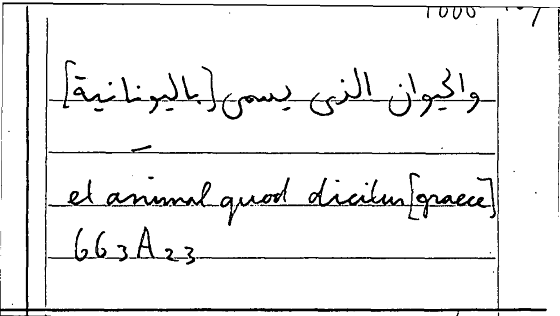 والحيوان الذى يسمى [باليونانية]
et animal quod dicitur [graece]
663A23